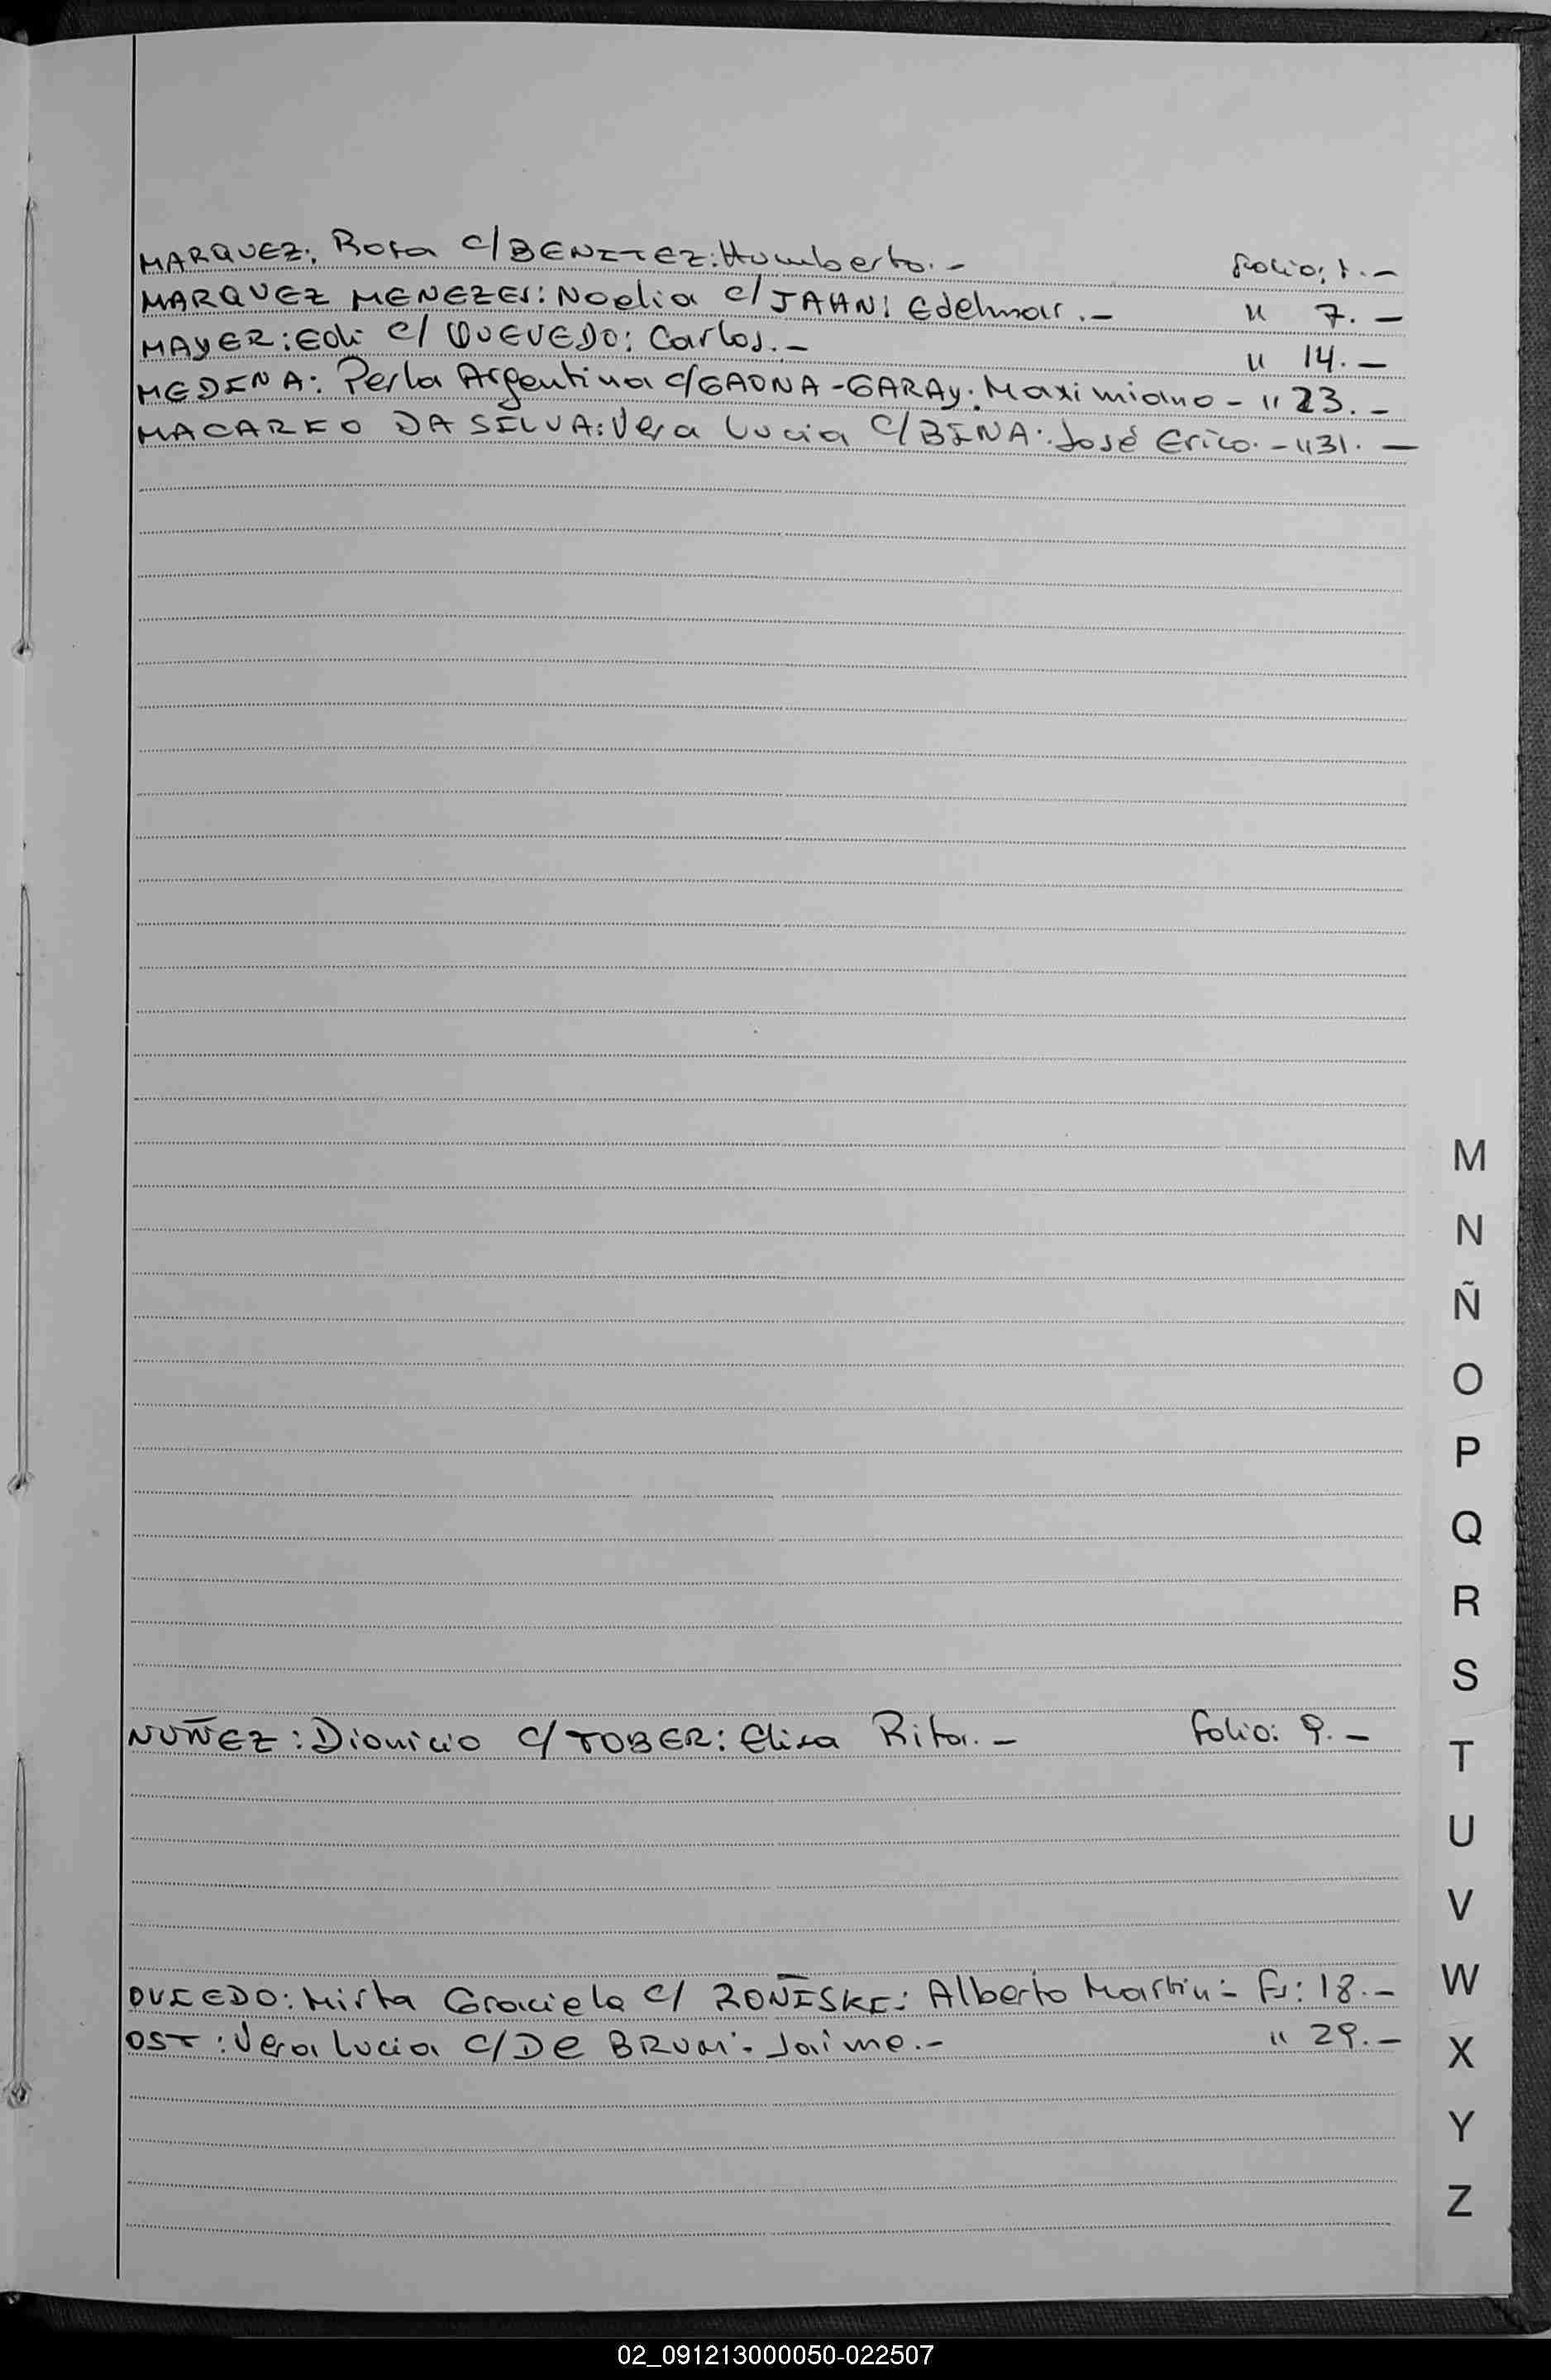 MARQUEZ: Rosa c/BENITEZ: Humberto.- folio: 1.-
MARQUEZ MENEZES: Noelia c/JAHN: Edelmar.- " 7.-
MAYER: Edi c/ QUEVEDO: Carlos.- " 14.-
MEDINA: Perla Argentina c/GAONA-GARAY: Maximiano- " 23.-
MACARIO DA SILVA: Vera Lucia c/BINA: José Erico.- " 31.-
NUÑEZ: Dionicio c/TOBER: Elisa Rita.- folio: 9.-
OVIEDO: Mirta Graciela c/ ROÑISKI: Alberto Martin- Fs: 18.-
OST: Vera Lucia c/DE BRUM: Jaime.- " 29.-
M
N
Ñ
O
P
Q
R
S
T
U
V
W
X
Y
Z
02_091213000050-022507